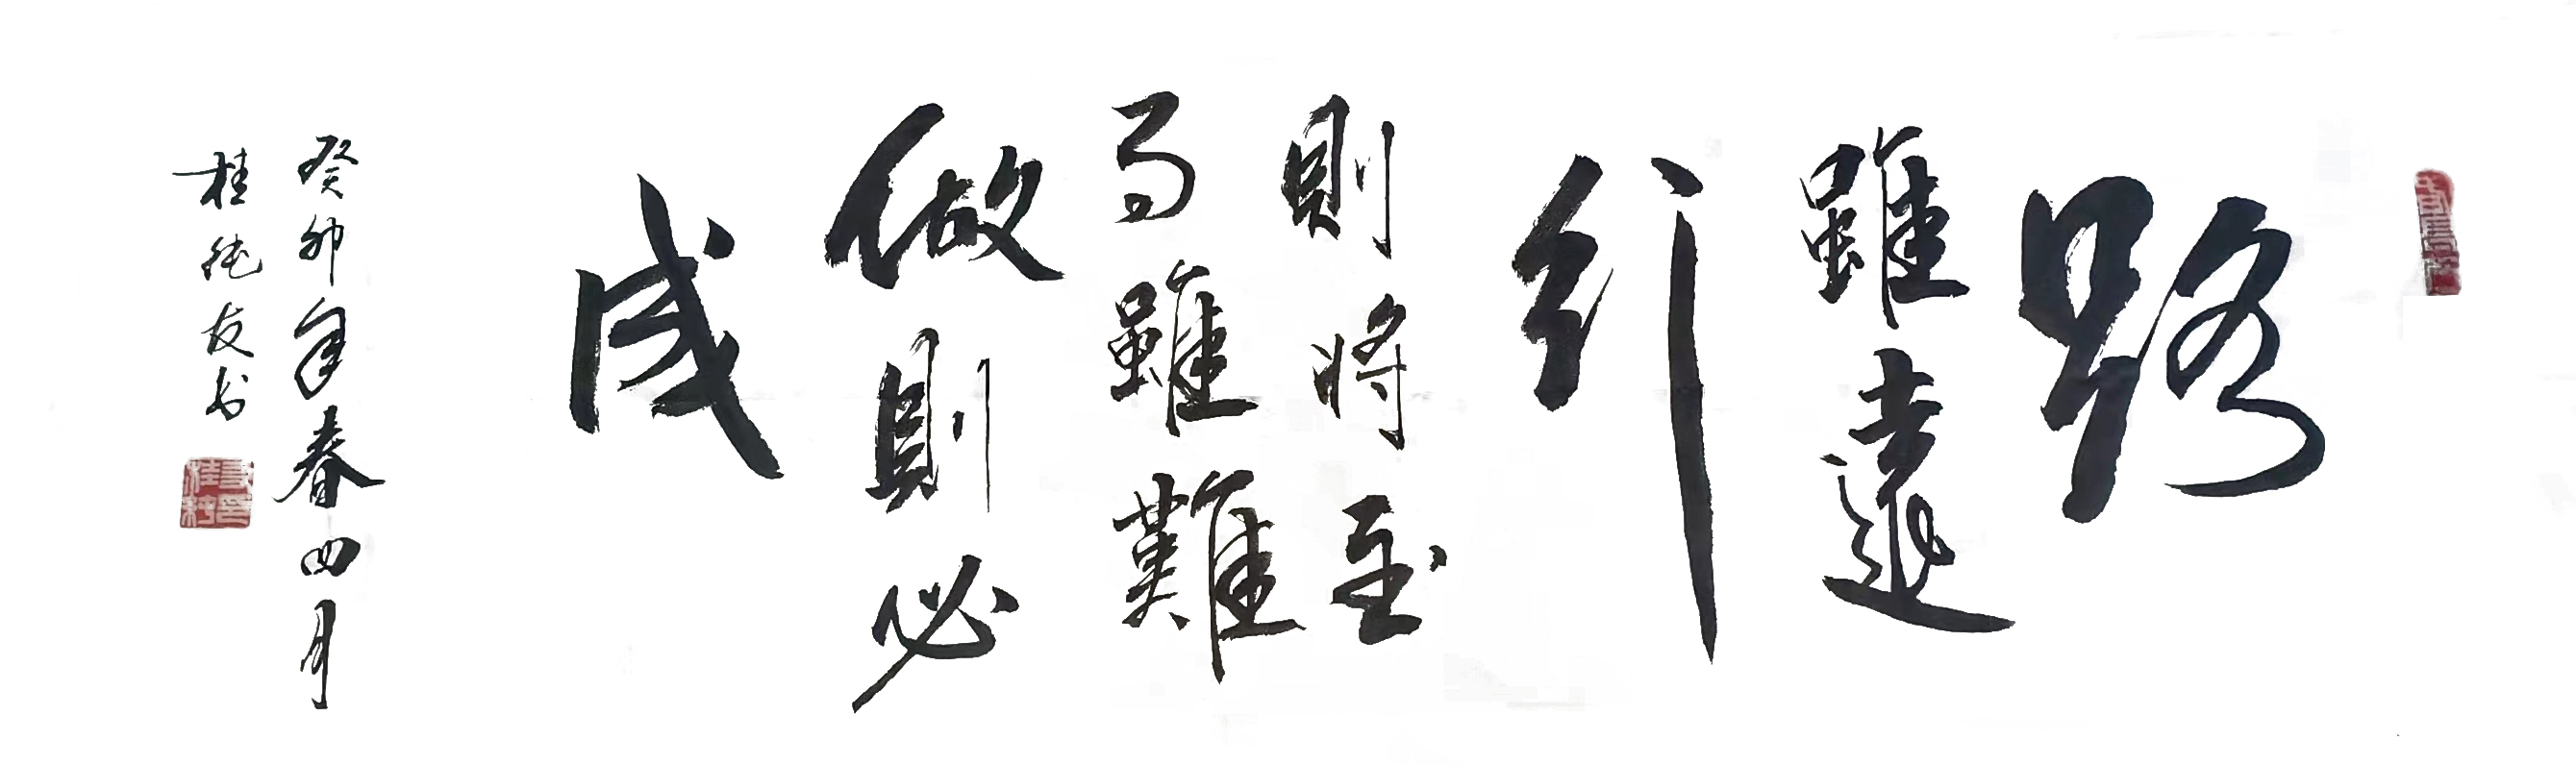 路
雖遠
行
則將至
事雖難
做則必
成
癸卯年春四月
桂德友书